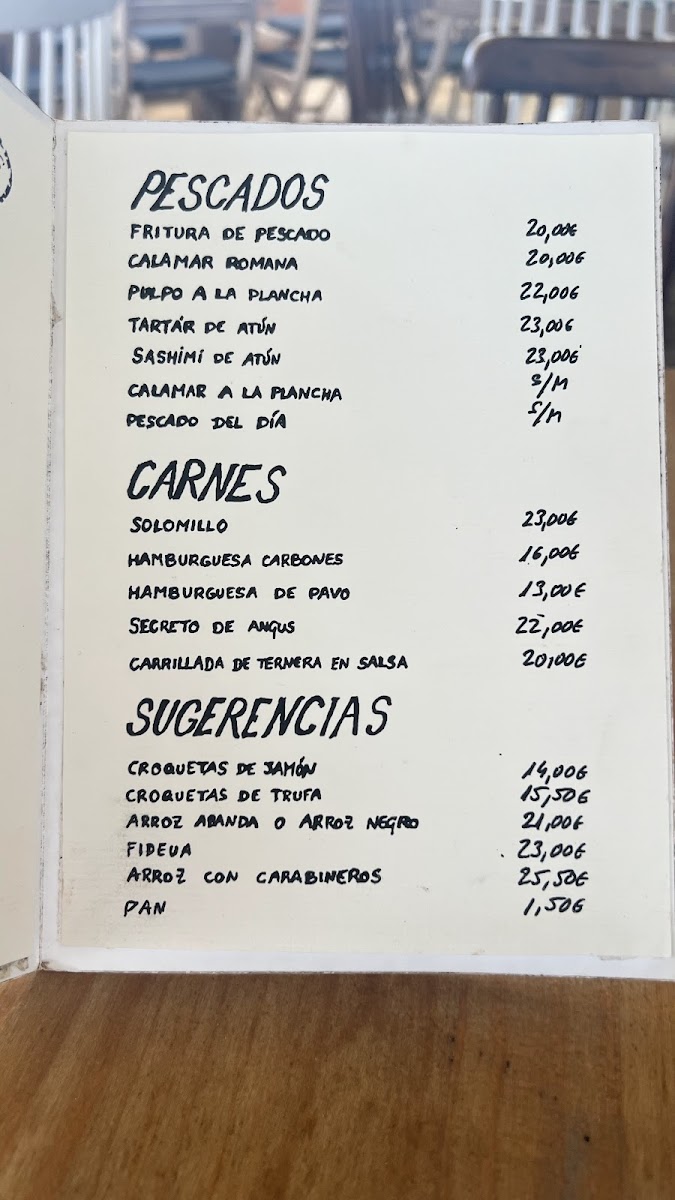 PESCADOS
FRITURA DE PESCADO 20,00€
CALAMAR ROMANA 20,00€
PULPO A LA PLANCHA 22,00€
TARTAR DE ATÚN 23,00€
SASHIMI DE ATÚN 23,00€
CALAMAR A LA PLANCHA S/M
PESCADO DEL DÍA S/M
CARNES
SOLOMILLO 23,00€
HAMBURGUESA CARBONES 16,00€
HAMBURGUESA DE PAVO 13,00€
SECRETO DE ANGUS 22,00€
CARRILLADA DE TERNERA EN SALSA 20,00€
SUGERENCIAS
CROQUETAS DE JAMÓN 14,00€
CROQUETAS DE TRUFA 15,50€
ARROZ ABANDA O ARROZ NEGRO 21,00€
FIDEUA 23,00€
ARROZ CON CARABINEROS 25,50€
PAN 1,50€